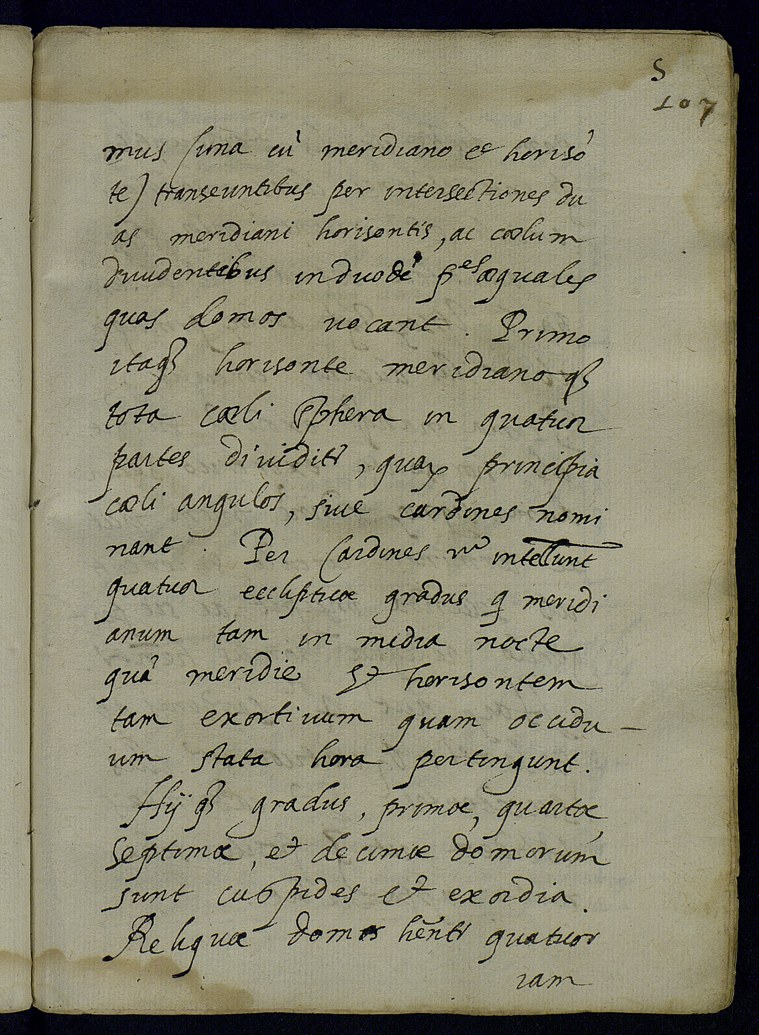 5
107
mus (una cū meridiano et horisō
te) transeuntibus per intersectiones du
as meridiani horisontis, ac cœlum
diuidentibus in duodē p^es æquales
quas domos uocant. Primo
itaq₃ horisonte meridianoq₃
tota cœli sphera in quatuor
partes dividitr̄, quaꝝ principia
cœli angulos, sive cardines nomi
nant. Per Cardines intellunt̄
quatuor ecclipticæ gradus q̄ meridi
anum tam in midia nocte
quā meridie et horisontem
tam exortiuum quam occidu-
um stata hora pertingunt.
Hijq₃ gradus, primæ, quartæ,
septimæ, et decimæ domorum
sunt cuspides et exordia.
Reliquæ domos hēntr̄ quatuor
iam